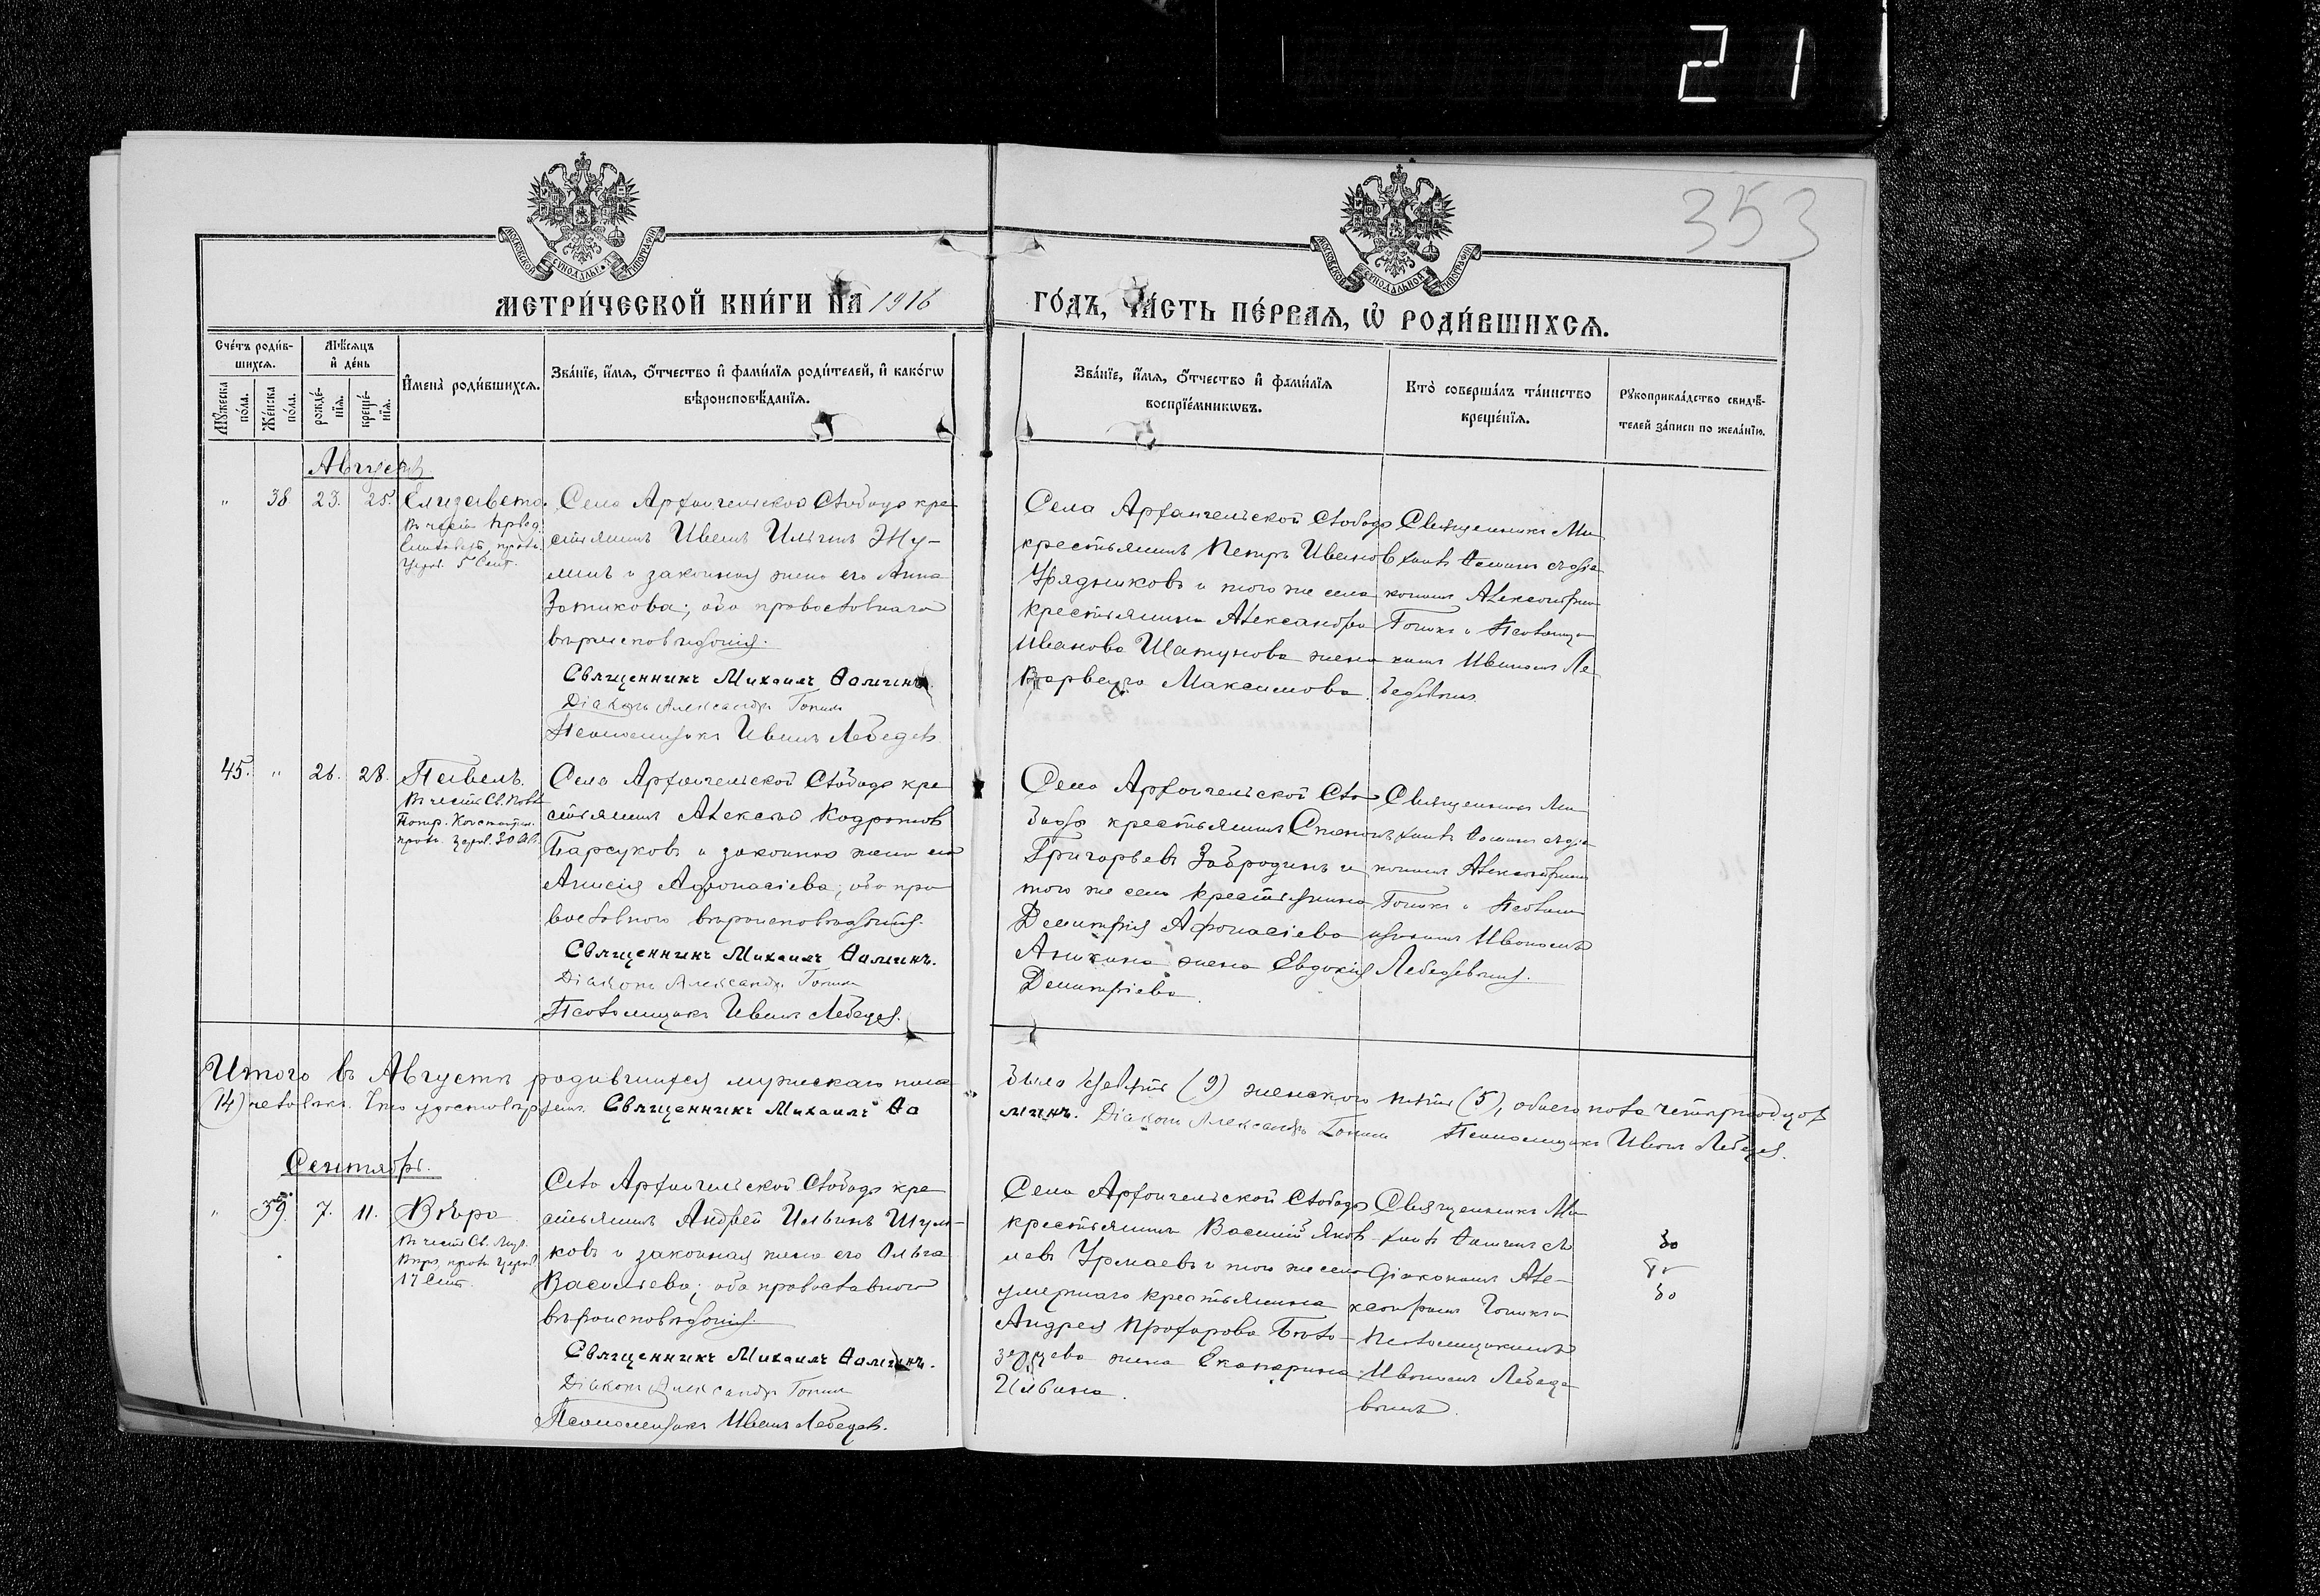 21
353
МОСКОВСКОЙ СУНОДАЛЬНОЙ ТИПОГРАФІИ
МОСКОВСКОЙ СУНОДАЛЬНОЙ ТИПОГРАФІИ
МЕТРИ́ЧЕСКОЙ КНИ́ГИ НА 1916
ГО́ДЪ, ЧА́СТЬ ПЕ́РВАЯ, Ѡ РОДИ́ВШИХСЯ.
Сче́тъ роди́в-
шихся.
Мѣ́сяцъ
и҆ де́нь
Мꙋ́жеска
по́ла.
Же́нска
по́ла.
рожде́-
нїѧ.
креще́-
нїѧ.
И҆мена̀ роди́вшихся.
Зва́нїе, и҆́мя, ѻ҆́тчество и҆ фами́лїя роди́телей, и҆ како́гѡ
вѣроисповѣ́данїя.
Зва́нїе, и҆́мя, ѻ҆́тчество и҆ фами́лїя
воспрїе́мникѡвъ.
Кто̀ соверша́лъ та́инство
креще́нїя.
Рꙋкоприкла́дство свидѣ́-
телей за́писи по жела́нїю.
Августъ
" 38 23. 25. Елизавета.
Въ честь Првод.
Елизаветы, празн.
церк. 5 Сент.
Села Архангельской Слободы кре
стьянинъ Иванъ Ильинъ Жу-
линъ и законная жена его Анна
Зотикова; оба православнаго
вѣроисповѣданія.
Священникъ Михаилъ Ѳоминъ.
Діаконъ Александръ Топил
Псаломщикъ Иванъ Лебедев
Села Архангельской Слободы
крестьянинъ Петръ Иванов
Урядниковъ и того же села
крестьянина Александра
Иванова Шатунова жена
Варвара Максимова.
Священникъ Ми
хаилъ Ѳоминъ съ діа
кономъ Александром
и Псаломщи
комъ Иваномъ Ле
бедевымъ.
45. " 26. 28. Павелъ.
Въ честь Св. Павла
Патр. Константин.
празн. церк. 30 Авг.
Села Архангельской Слободы кре
стьянинъ Алексѣй Кодратов
Барсуковъ и законная жена его
Анисія Афонасіева; оба пра
вославнаго вѣроисповѣданія.
Священникъ Михаилъ Ѳоминъ.
Діаконъ Александръ
Псаломщикъ Иванъ Лебедев.
Села Архангельской Сло
боды крестьянинъ
Григорьевъ Забродинъ и
того же села крестьянина
Димитрія Афонасіева
Аникина жена Евдокія
Димитріева.
Священникъ Ми
хаилъ Ѳоминъ съ діа
кономъ Александром
и Псалом
щикомъ Иваномъ
Лебедевымъ.
Итого въ Августѣ родившихся мужескаго пола
было девять (9) женскаго пять (5), обоего пола четырнадцать
(14) человѣкъ. Что удостовѣряемъ. Священникъ Михаилъ Ѳо
минъ. Діаконъ Александръ Псаломщикъ Иванъ Лебедев.
Сентябрь.
" 39. 7. 11. Вѣра
Въ честь Св. Муч.
Вѣры, празн. церк.
17 Сент.
Села Архангельской Слободы кре
стьянинъ Андрей Ильинъ
ковъ и законная жена его Ольга
Васильева; оба православнаго
вѣроисповѣданія.
Священникъ Михаилъ Ѳоминъ.
Діаконъ Александръ
Псаломщикъ Иванъ Лебедев.
Села Архангельской Слободы
крестьянинъ Василій Яков
левъ Урмаевъ и того же села
умершаго крестьянина
Андрея Прохорова Бѣло-
зерцева жена Екатерина
Ильина.
Священникъ Ми
хаилъ Ѳоминъ съ
діакономъ Але-
ксандромъ
Псаломщикомъ
Иваномъ Лебеде
вымъ.